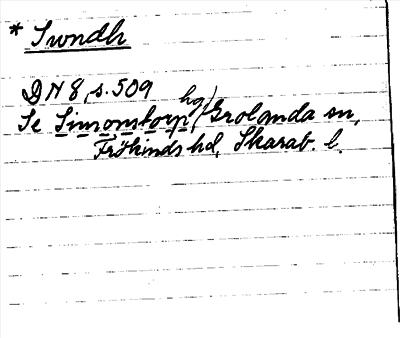 * Swndh
DN 8, s. 509
Se Simonstorp hg, Grolanda sn,
Frökinds hd, Skarab. l.